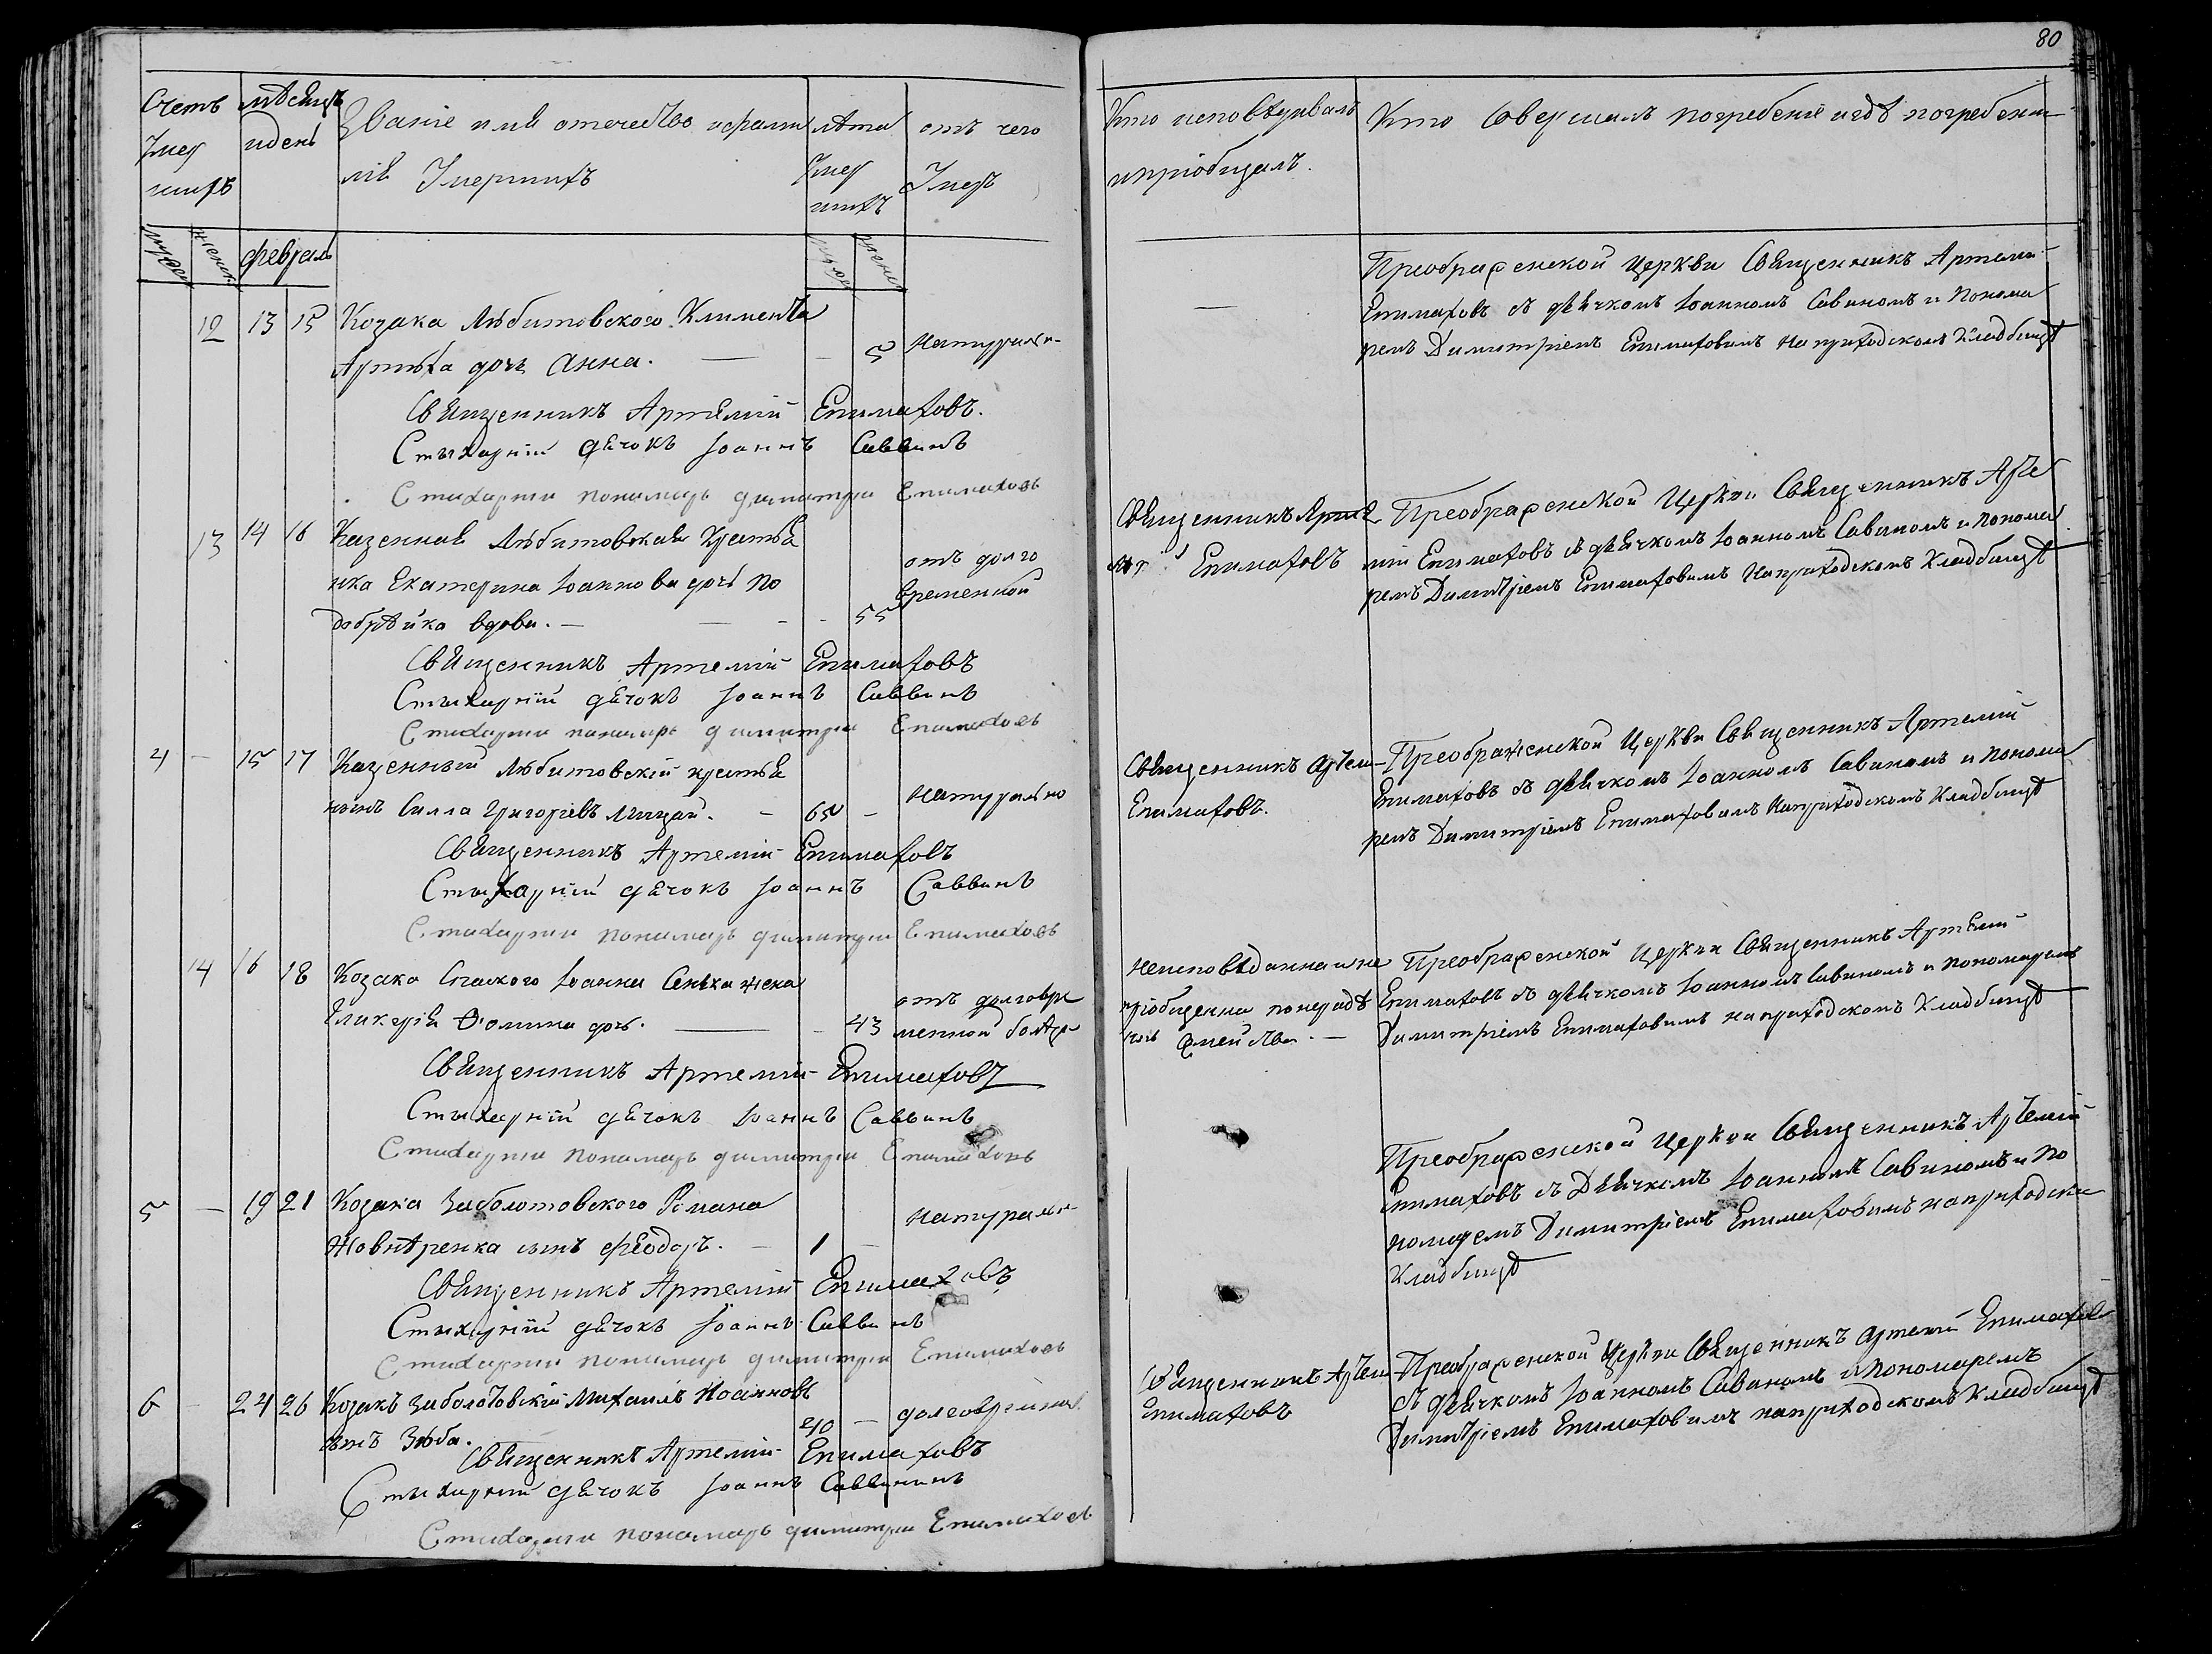 80
Счетъ
Умер
шихъ
мѣсяцъ
и день
Званіе имя отечество и фами
лія Умершихъ
лѣта
Умер
шихъ
отъ чего
Умеръ
Кто исповѣдывалъ
и пріобщалъ.
Кто Совершалъ погребеніе и гдѣ погребены
февраль
12 13 15 Козака Любитовского Климента
дочь Анна. — 5
Священникъ Артемій Епимаховъ.
Стыхарній дячокъ Іоаннъ Саввинъ
Стихарни пономаръ димитри Епимаховъ
— Преображенской Церкви Священникъ Артемій
Епимаховъ съ дячкомъ Іоанномъ Савиномъ и Понома
ремъ Димитріемъ Епимаховимъ на приходскомъ Кладбищѣ
13 14 16 Казенная Любитовская Крестья
нка Екатерина Іоаннова дочь По
добрѣйка вдова. — 55
отъ долго
временной
Священникъ Артемій Епимаховъ
Стыхарній дячокъ Іоаннъ Саввинъ
Стихарни пономаръ димитри Епимаховъ
Священникъ Арте
мій Епимаховъ
Преображенской Церкви Священникъ Арте
мій Епимаховъ съ дячкомъ Іоанномъ Савиномъ и Понома
ремъ Димитріемъ Епимаховимъ На приходскомъ Кладбищѣ
4 — 15 17 Казенный Любитовскій крестья
нинъ Силла Григоріевъ - 65 - натурально
Священникъ Артемій Епимаховъ
Стыхарній дячокъ Іоаннъ Саввинъ
Стихарни пономаръ димитри Епимаховъ
Священникъ Артем
Епимаховъ.
Преображенской Церкви Священникъ Артемій
Епимаховъ съ дячкомъ Іоанномъ Савиномъ и понома
ремъ Димитріемъ Епимаховимъ На приходскомъ Кладбищѣ
14 16 18 Козака Спаского Іоанна жена
Гликерія Фомина дочь. — 43
отъ долговре
менной болѣз
Священникъ Артемій Епимаховъ
Стыхарній дячокъ Іоаннъ Саввинъ
Стихарни пономаръ димитри Епимаховъ
Неисповѣдана и не
пріобщенна по нерадѣ
нію Семейства. —
Преображенской Церкви Священникъ Артемій
Епимаховъ съ дячкомъ Іоанномъ Савиномъ и пономаремъ
Димитріемъ Епимаховимъ на приходскомъ Кладбищѣ
5 — 19 21 Козака Заболотовского Романа
Жовнѣренка сынъ Феодоръ. — 1 —
Священникъ Артемій Епимаховъ
Стыхарній дячокъ Іоаннъ Саввинъ
Стихарни пономаръ димитри Епимаховъ
Преображенской Церкви Священникъ Артемій
Епимаховъ съ Дячкомъ Іоанномъ Савиномъ и По
номаремъ Димитріемъ Епимаховимъ на приходском
Кладбищѣ
6 24 26 Козакъ Заболотовскій Михаилъ Иоанновъ
сынъ Зюба. 40 —
Священникъ Артемій Епимаховъ
Стыхарній дячокъ Іоаннъ Саввининъ
Стихарни пономаръ димитри Епимаховъ
Священникъ Артем
Епимаховъ
Преображенской Церкви Священникъ Артемій Епимахов
съ дячкомъ Іоанномъ Савиномъ и пономаремъ
Димитріемъ Епимаховимъ на приходскомъ Кладбищѣ